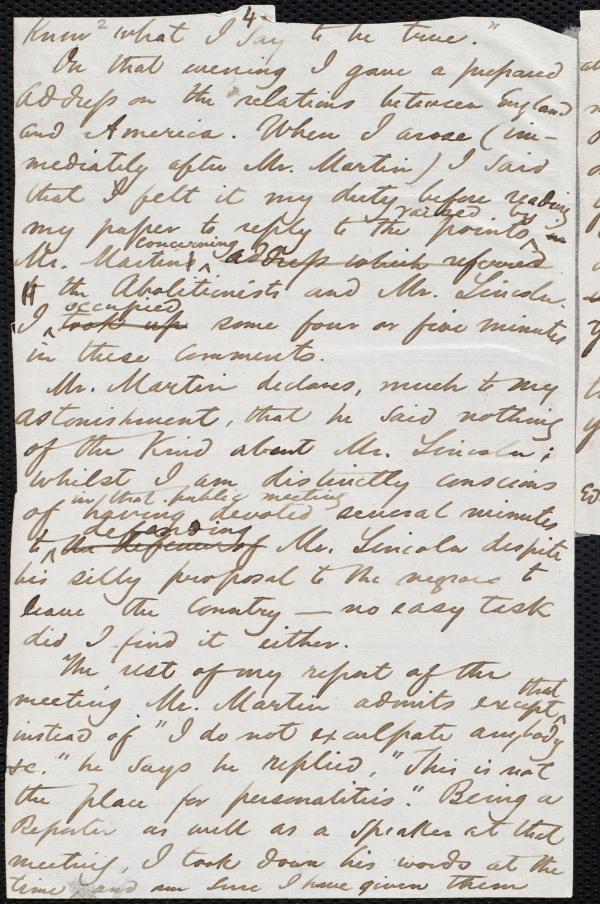 4.
Know 2 what I say to be true."
On that evening I gave a prepared
address on the relations between England
and America. When I arose (im-
mediately after Mr. Martin) I said
that I felt it my duty before reading
my paper to reply to the points raised by
Mr. Martin's concerning address which referred
to the Abolitionists and Mr. Lincoln.
I occupied took up some four or five minutes
in these comments.
Mr. Martin declares, much to my
astonishment, that he said nothing
of the kind about Mr. Lincoln;
whilst I am distinctly conscious
in that public meeting
of having devoted several minutes
to defending the defence of Mr. Lincoln despite
his silly proposal to the negroes to
leave the Country — no easy task
did I find it either.
The rest of my report of the
meeting Mr. Martin admits except that
instead of "I do not exculpate anybody
&c." he says he replied, "This is not
the place for personalities." Being a
Reporter as well as a speaker at that
meeting, I took down his words at the
time, and am sure I have given them